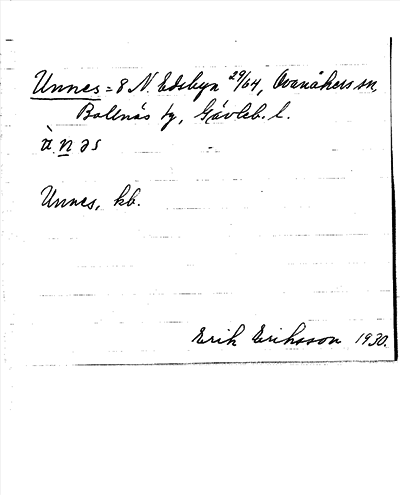 Unnes = 8 N. Edsbyn 29/64, Ovanåkers sn,
Bollnäs tg, Gävleb. l.
ù n ə s
Unnes, kb.
Erik Eriksson 1930.